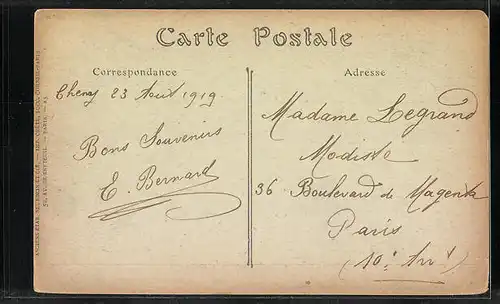 Carte Postale
Correspondance
Adresse
23 Août 1919
Bons Souvenirs
E. Bernard
Madame Legrand
Modiste
36 Boulevard de Magenta
Paris
(10e Arrt)